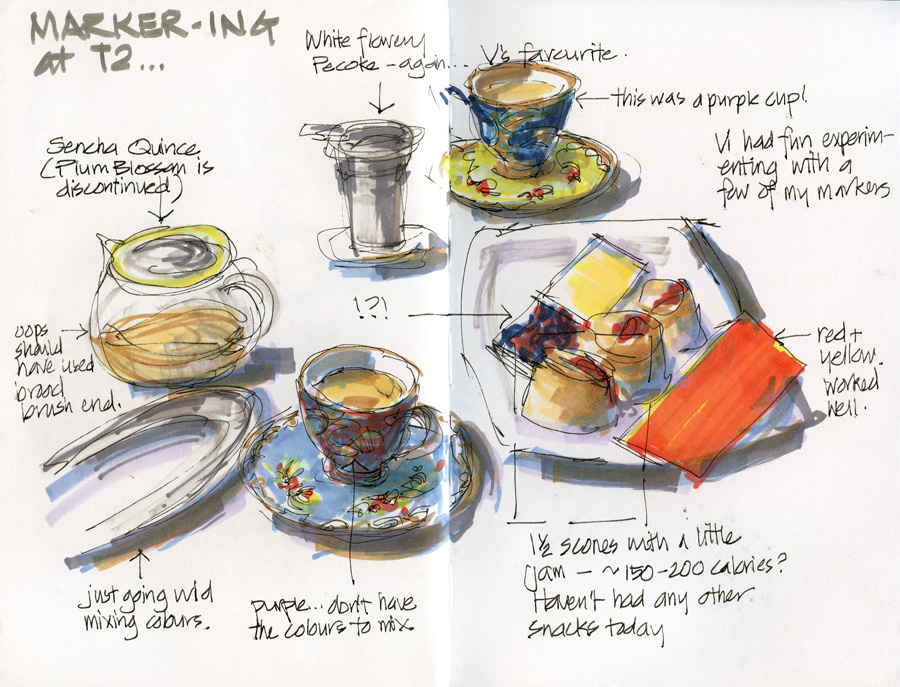 MARKER-ING
at T2...
White flowery
Pecoke - again...
V's favourite.
this was a purple cup!
Vi had fun experim-
enting with a
few of my markers
Sencha Quince
(Plum Blossom is
discontinued)
!?!
oops
should
have used
broad
brush end.
red +
yellow.
worked
well.
just going wild
mixing colours.
purple... don't have
the colours to mix
1½ scones with a little
jam - ~150-200 calories?
Haven't had any other
snacks today